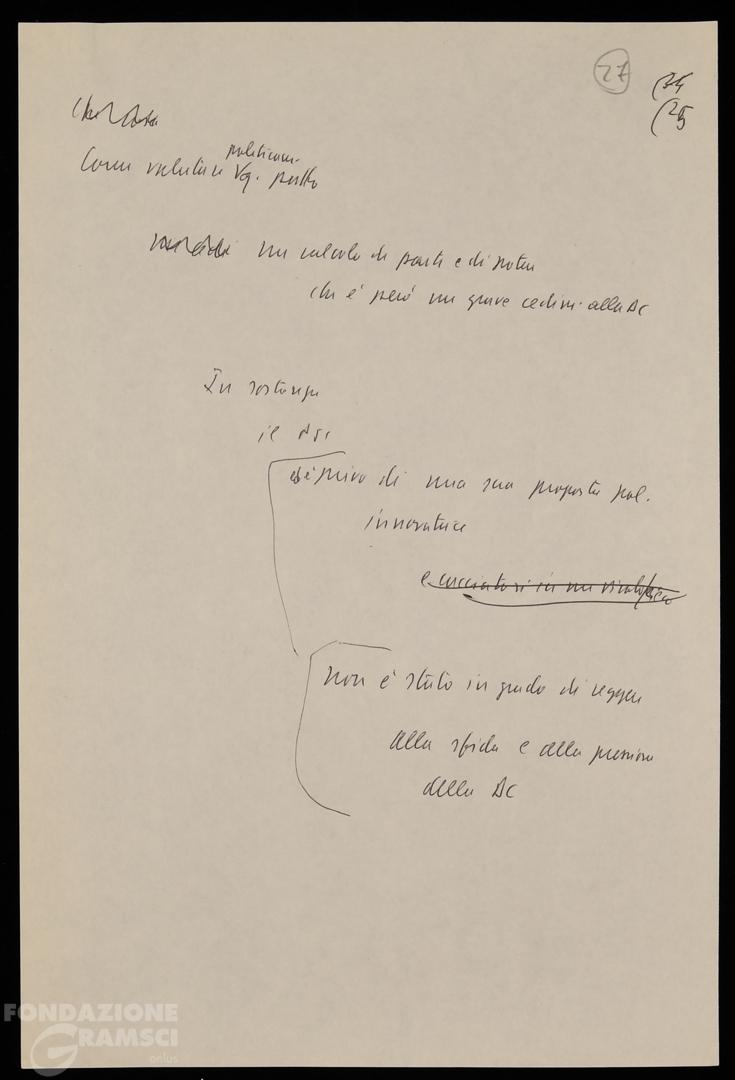 27
(24
(25
politicam.
Come valutare qq. patto
un calcolo di parte e di potere
che è però un grave cedim. alla DC
In sostanza
il PSI
è privo di una sua proposta pol.
innovatrice
e
non è stato in grado di reggere
alla sfida e alla pressione
della DC
FONDAZIONE
GRAMSCI
onlus